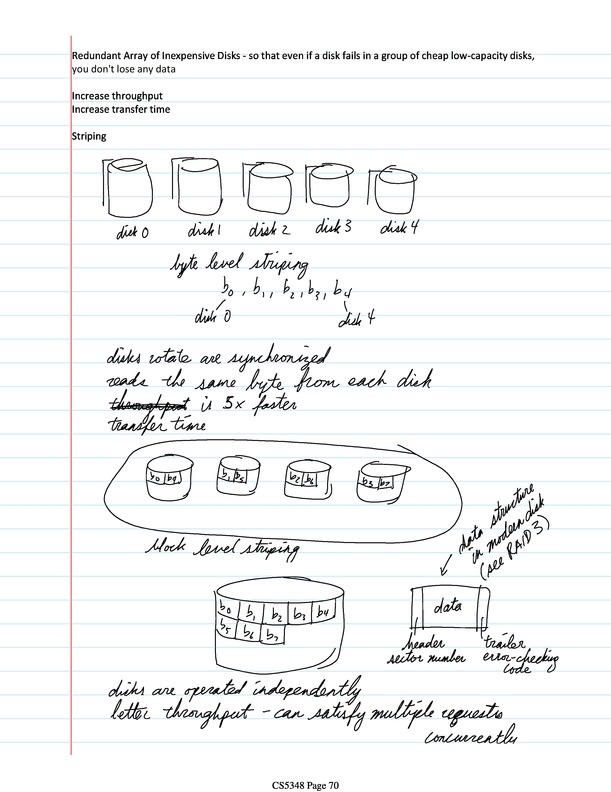 Redundant Array of Inexpensive Disks - so that even if a disk fails in a group of cheap low-capacity disks,
you don't lose any data
Increase throughput
Increase transfer time
Striping
disk 0 disk 1 disk 2 disk 3 disk 4
byte level striping
b0, b1, b2, b3, b4
disk 0 disk 4
disks rotate are synchronized
reads the same byte from each disk
throughput is 5x faster
transfer time
b0 b4 b1 b5 b2 b6 b3 b7
block level striping
data structure
in modern disk
(see RAID 3)
b0 b1 b2 b3 b4
b5 b6 b7
data
header trailer
sector number error-checking
code
disks are operated independently
better throughput - can satisfy multiple requests
concurrently
CS5348 Page 70